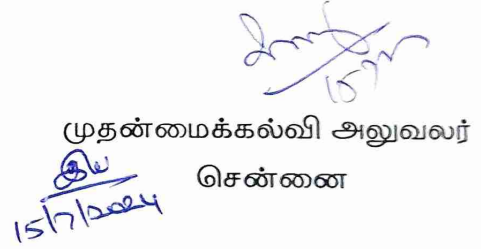 15/7
முதன்மைக்கல்வி அலுவலர்
சென்னை
15/7/2024